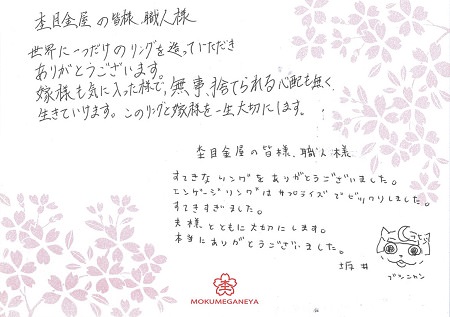 杢目金屋の皆様 職人様
世界に一つだけのリングを造っていただき
ありがとうございます。
嫁様も気に入った様で,無事、捨てられる心配も無く
生きていけます。このリングと嫁様を一生大切にします。
杢目金屋の皆様、職人様
すてきなリングをありがとうございました。
エンゲージリングはサプライズでビックリしました。
すてきすぎました。
夫様とともに大切にします。
本当にありがとうございました。
坂井
MOKUMEGANEYA